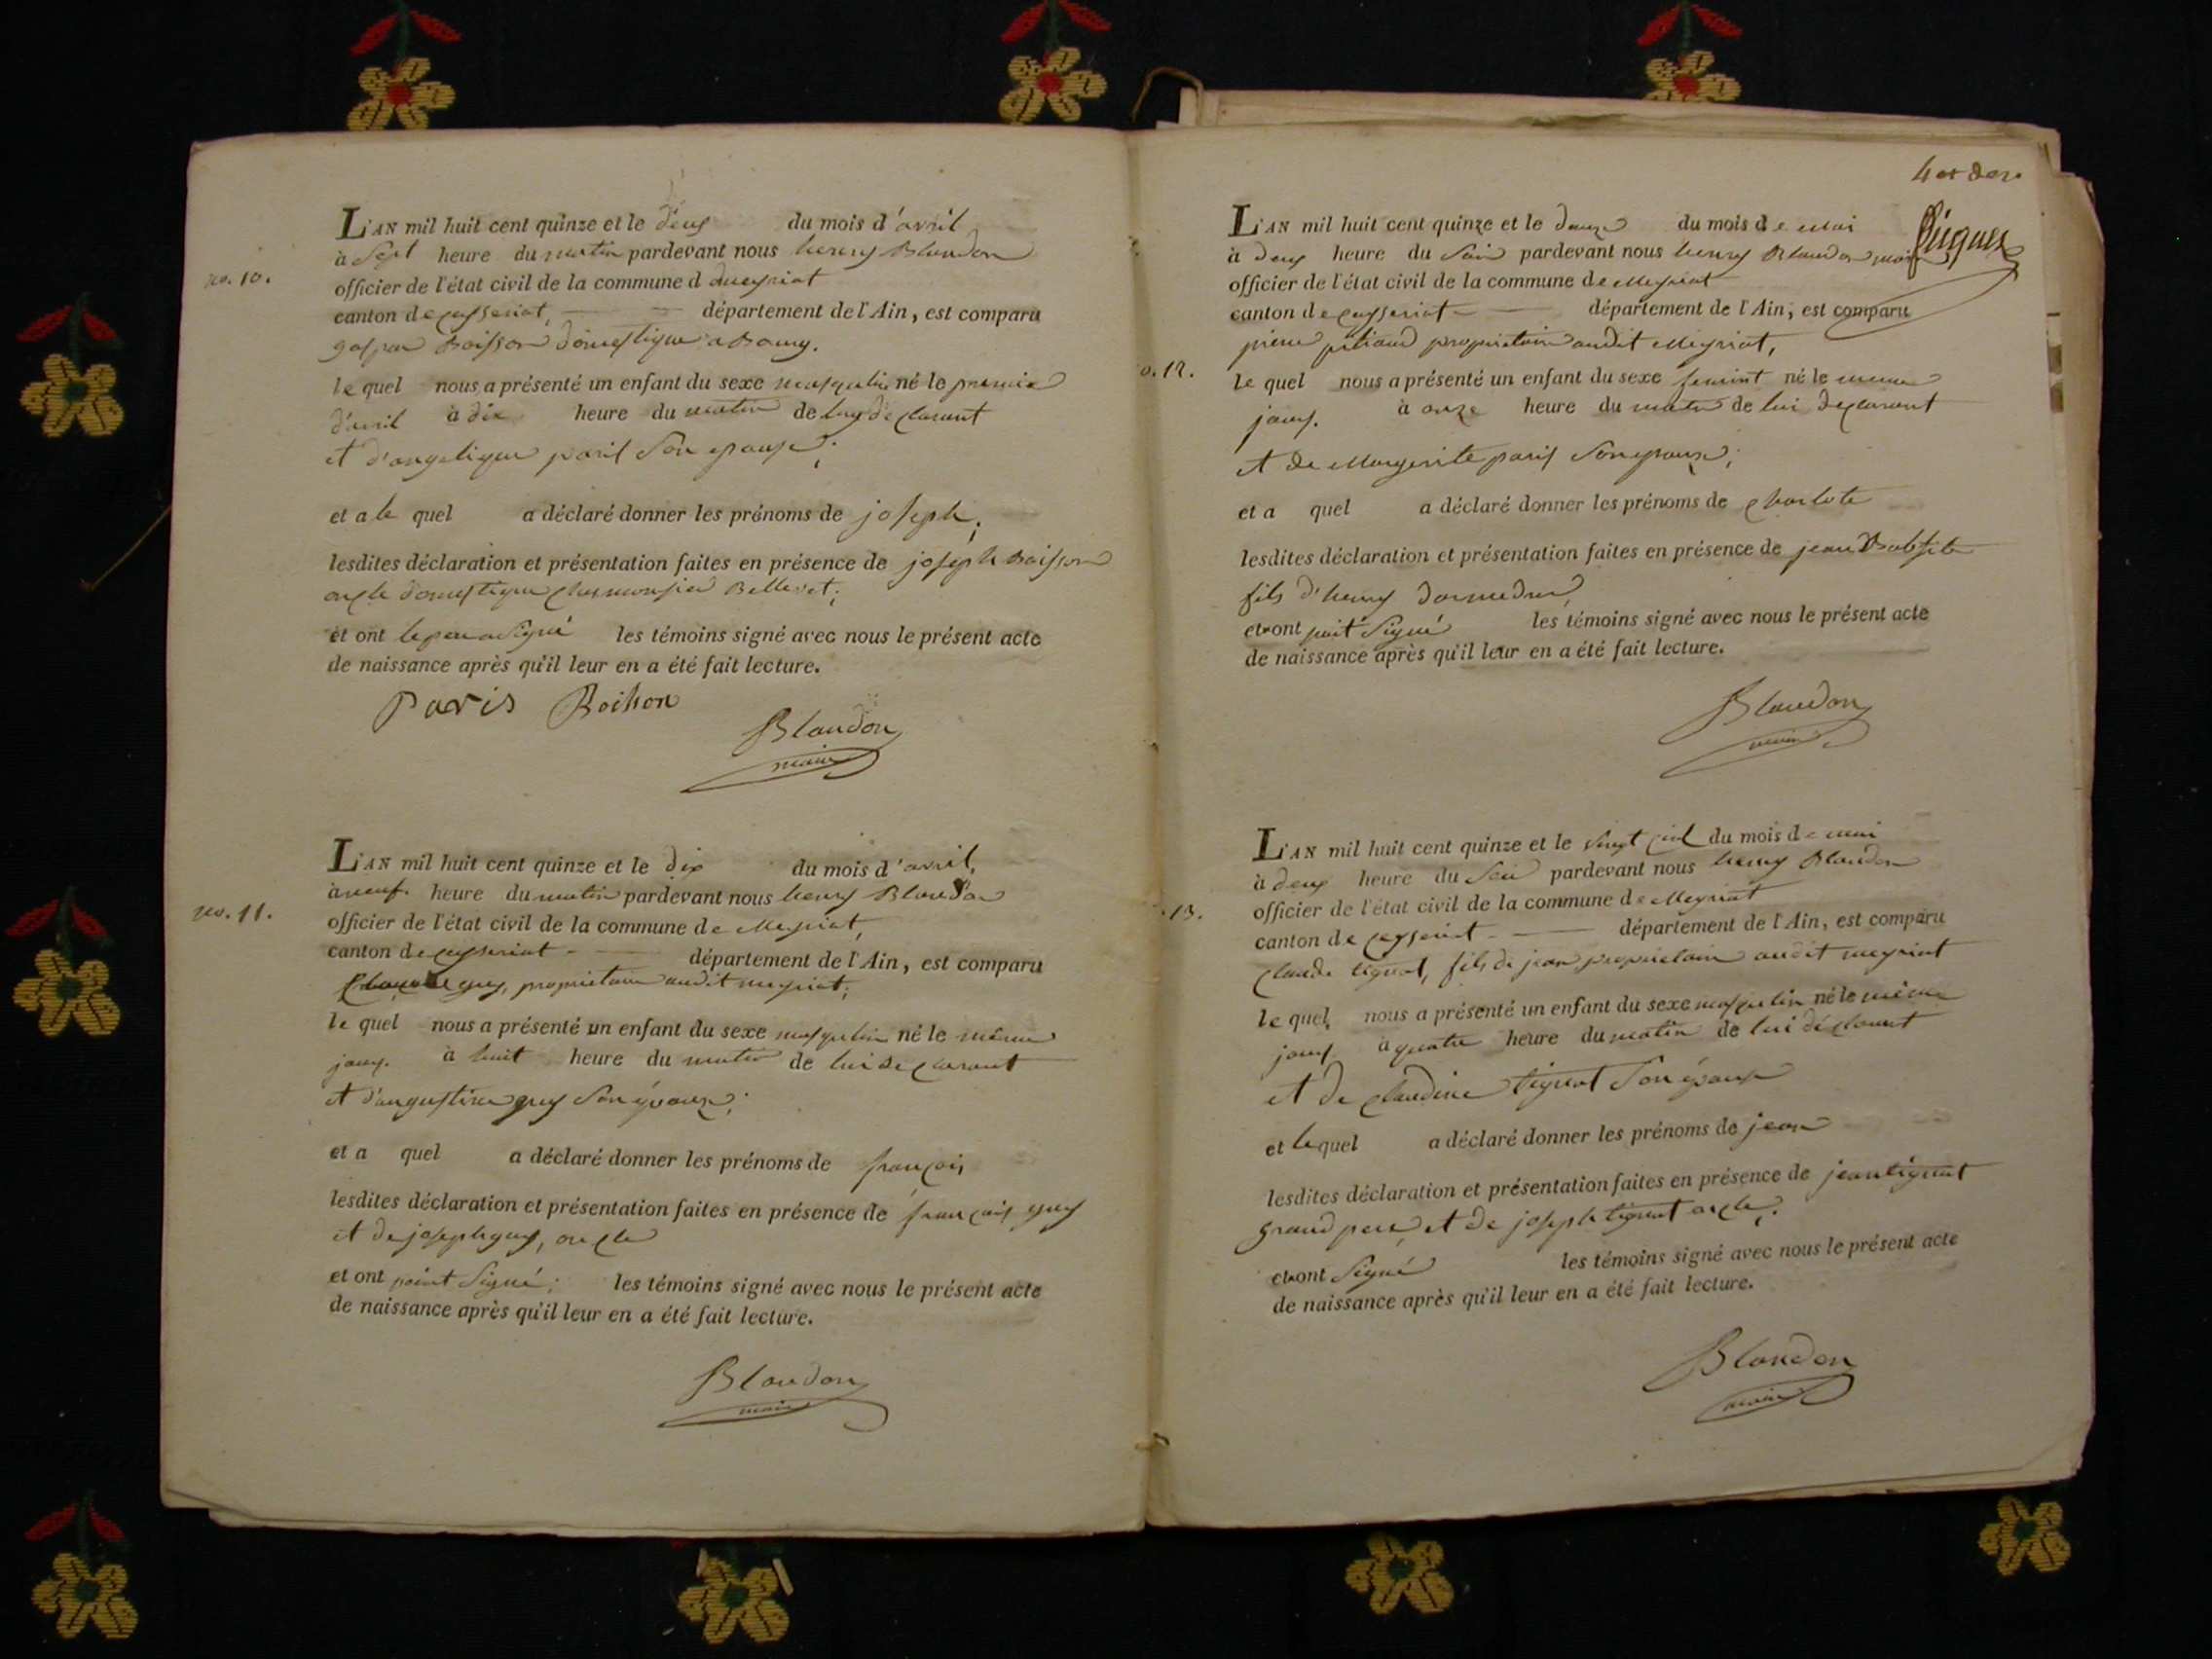 no. 10.
L'AN mil huit cent quinze et le deux du mois d'avril
à Sept heure du matin pardevant nous henry Blandon
officier de l'état civil de la commune d meyriat
canton de ceyseriat, département de l'Ain, est comparu
gaspar Boisson domestique a Bourg.
le quel nous a présenté un enfant du sexe masqulin né le premier
d'avril à dix heure du matin de luy déclarant
et d'angelique paris Son epouse;
et a le quel a déclaré donner les prénoms de joseph;
lesdites déclaration et présentation faites en présence de joseph Boisson
oncle domestique ches monsieur Bellevet;
et ont le pere a Signé les témoins signé avec nous le présent acte
de naissance après qu'il leur en a été fait lecture.
Paris Boihon
Blandon
maire
no. 11.
L'AN mil huit cent quinze et le dix du mois d'avril,
à neuf heure du matin pardevant nous henry Blandon
officier de l'état civil de la commune de Meyriat,
canton de ceyseriat département de l'Ain, est comparu
guy, proprietaire audit meyriat;
le quel nous a présenté un enfant du sexe masqulin né le même
jour. à huit heure du matin de lui declarant
et d'augustine guy Son épouse;
et a quel a déclaré donner les prénoms de françois
lesdites déclaration et présentation faites en présence de françois guy
et de joseph guy, oncle
et ont point Signé; les témoins signé avec nous le présent acte
de naissance après qu'il leur en a été fait lecture.
Blandon
maire
4 et der.
L'AN mil huit cent quinze et le douze du mois de Mai
à deux heure du Soir pardevant nous henry Blandon maire
officier de l'état civil de la commune de Meyriat
canton de ceyseriat département de l'Ain, est comparu
o. 12.
pierre proprietaire audit Meyriat,
le quel nous a présenté un enfant du sexe femint né le meme
jour. à onze heure du matin de lui declarant
et de Margerite paris Son epouse;
et a quel a déclaré donner les prénoms de charlote
lesdites déclaration et présentation faites en présence de jean Babtiste
fils d'henry
et ont point Signé les témoins signé avec nous le présent acte
de naissance après qu'il leur en a été fait lecture.
Blandon
maire
13.
L'AN mil huit cent quinze et le vingt cinq du mois de mai
à deux heure du Soir pardevant nous henry Blandon
officier de l'état civil de la commune de Meyriat
canton de ceyseriat département de l'Ain, est comparu
claude tignat, fils de jean proprietaire audit meyriat
le quel, nous a présenté un enfant du sexe masqulin né le même
jour à quatre heure du matin de lui déclarant
et de claudine tignat Son épouse
et le quel a déclaré donner les prénoms de jean
lesdites déclaration et présentation faites en présence de jean tignat
grand pere, et de joseph tignat oncle;
et ont Signé les témoins signé avec nous le présent acte
de naissance après qu'il leur en a été fait lecture.
Blandon
maire